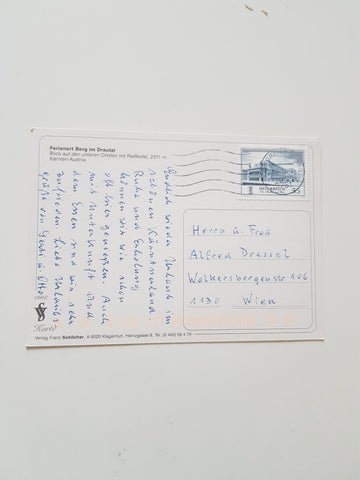 Ferienort Berg im Drautal
Blick auf den unteren Ortsteil mit Reißkofel, 2371 m
Kärnten-Austria
Endlich wieder Urlaub im
schönen Kärntnerland
Ruhe und Erholung
können wir wie schon
oft hier genießen. Auch
mit Unterkunft und
dem Essen sind wir sehr
zufrieden. Liebe Urlaubs
grüße von Gerti u. Otto
Herrn u. Frau
Alfred Dressel
Wolkersbergenstr 106
1130 Wien
eine
Karte
Verlag Franz Schilcher, A-9020 Klagenfurt, Heinzgasse 6, Tel. (0 463) 56 4 73